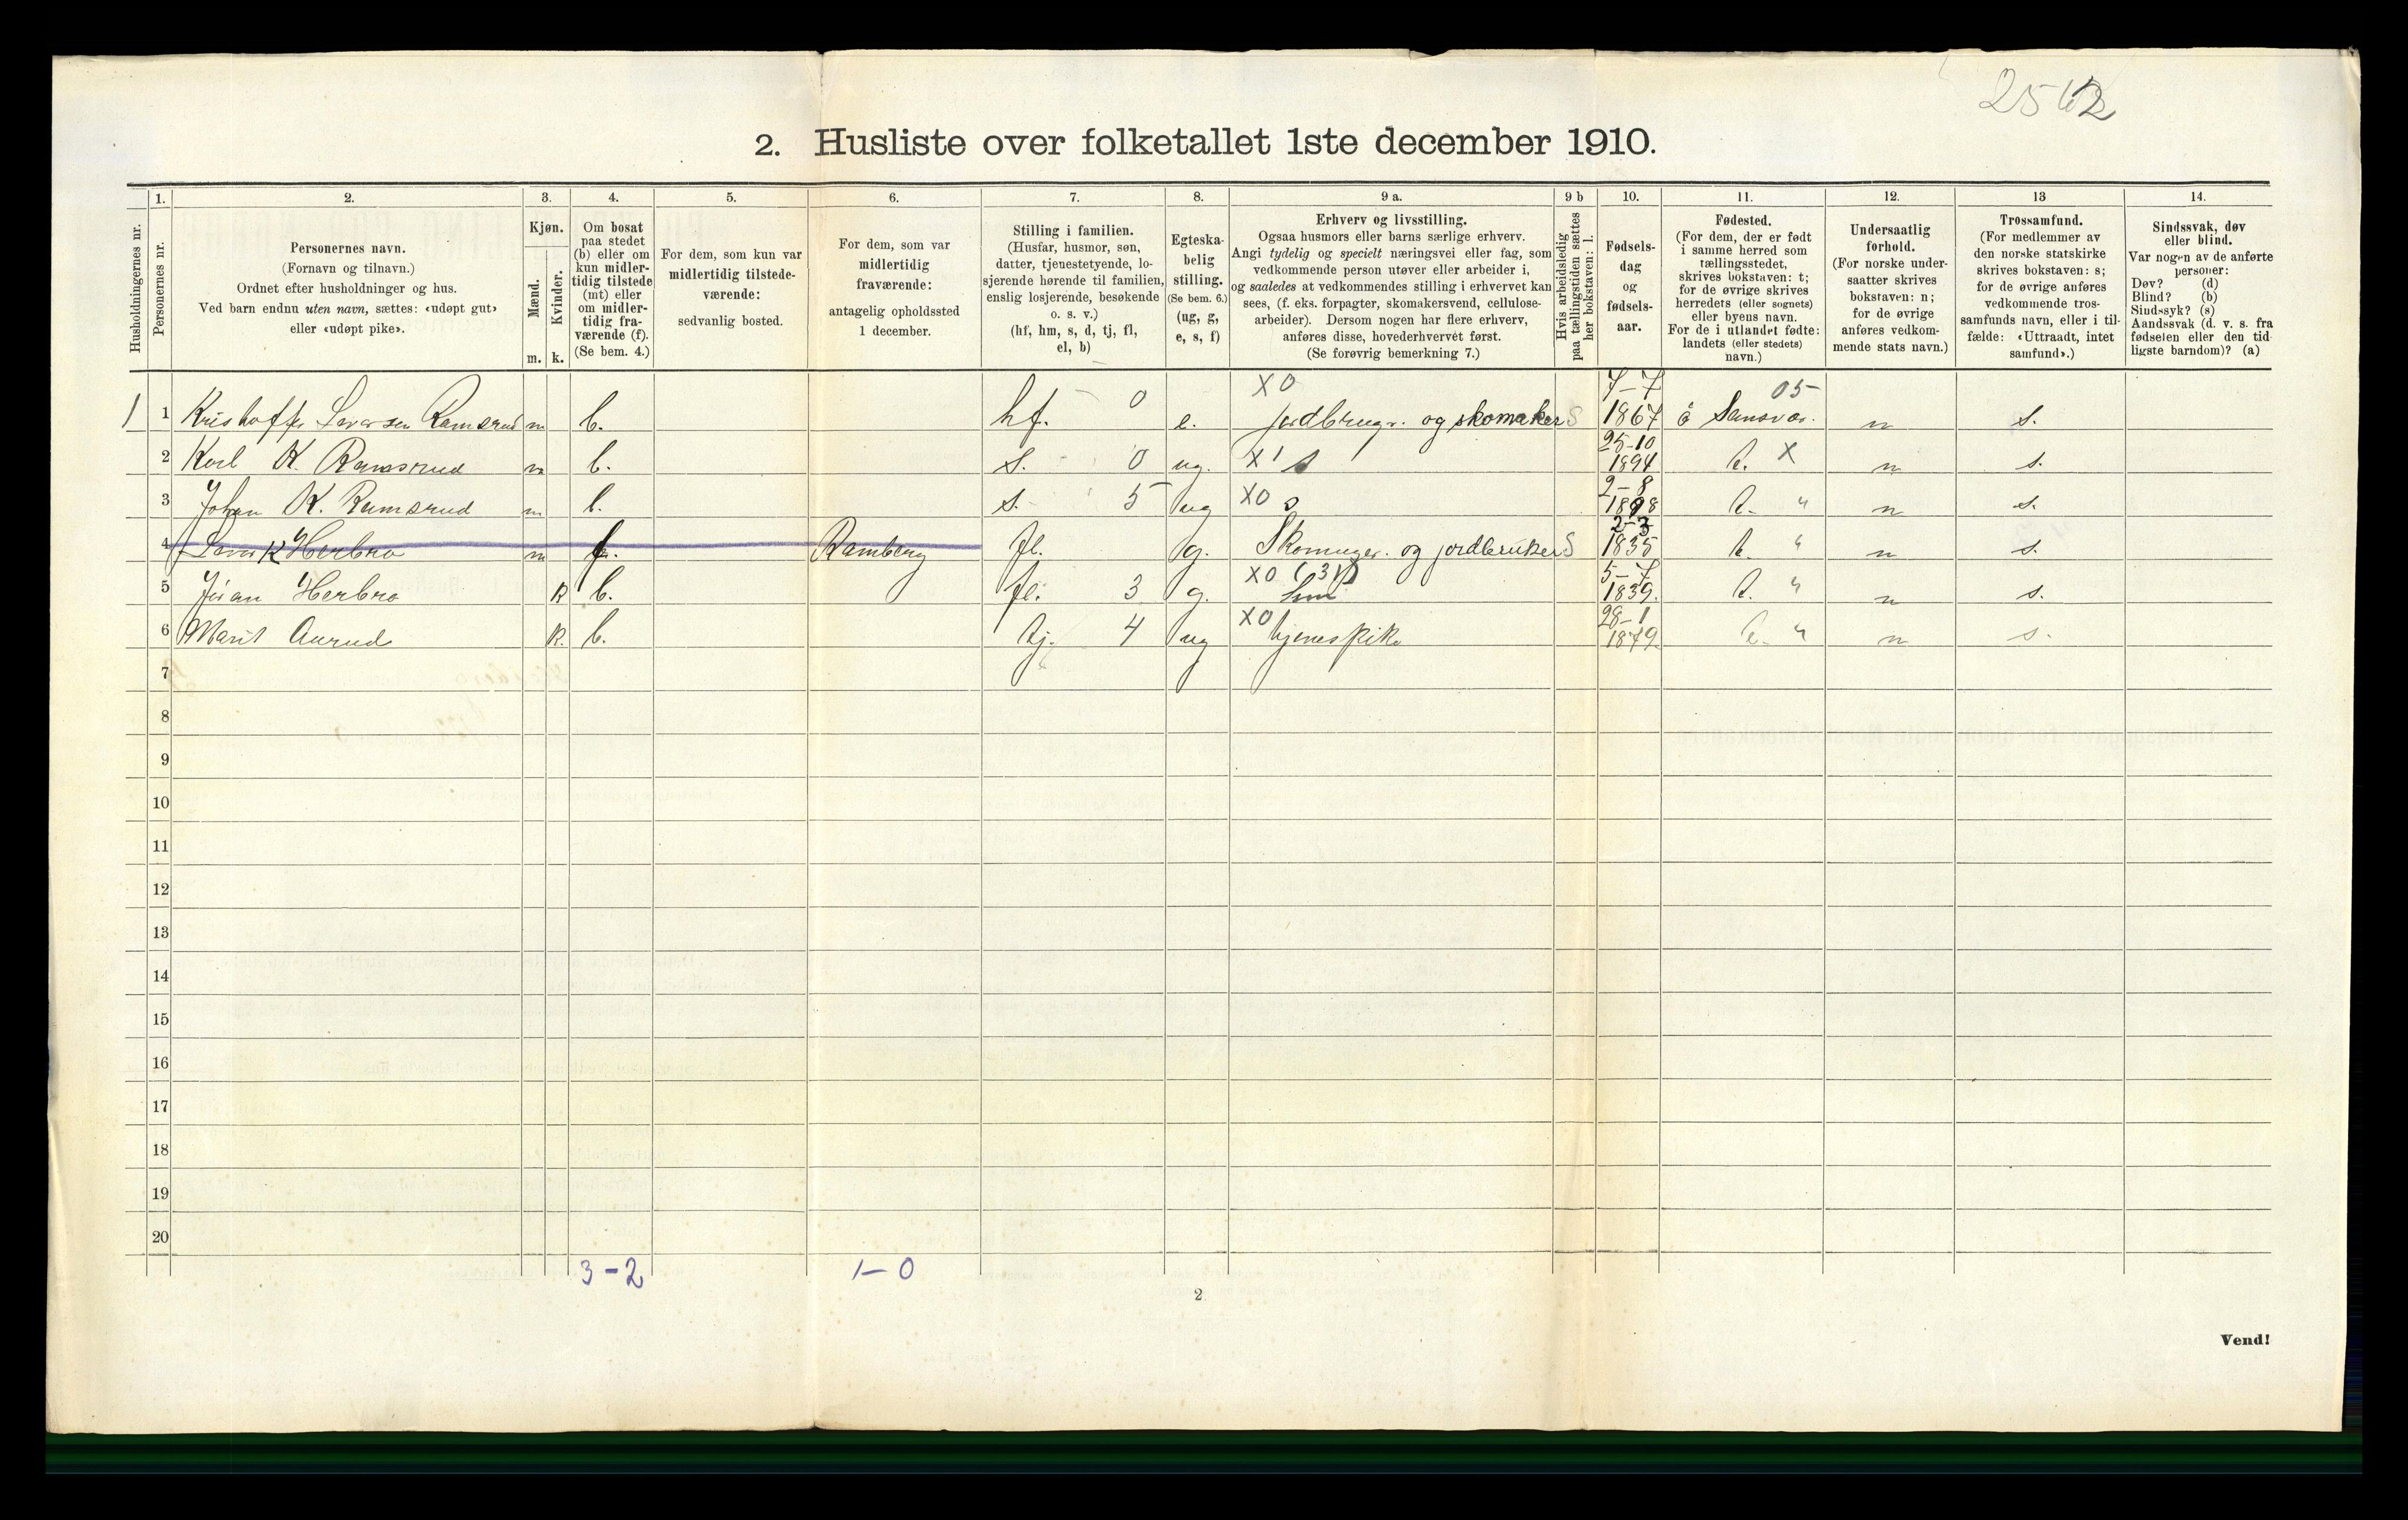 2. Husliste over folketallet 1ste december 1910.
Husholdningernes nr.
1. 2. 3. 4. 5. 6. 7. 8. 9 a. 9 b 10. 11. 12. 13 14.
Personernes nr.
Personernes navn.
(Fornavn og tilnavn.)
Ordnet efter husholdninger og hus.
Ved barn endnu uten navn, sættes: «udøpt gut»
eller «udøpt pike».
Kjøn.
Mænd.
Kvinder.
m. k.
Om bosat
paa stedet
(b) eller om
kun midler-
tidig tilstede
(mt) eller
om midler-
tidig fra-
værende (f).
(Se bem. 4.)
For dem, som kun var
midlertidig tilstede-
værende:
sedvanlig bosted.
For dem, som var
midlertidig
fraværende:
antagelig opholdssted
1 december.
Stilling i familien.
(Husfar, husmor, søn,
datter, tjenestetyende, lo-
sjerende hørende til familien,
enslig losjerende, besøkende
o. s. v.)
(hf, hm, s, d, tj, fl,
el, b)
Egteska-
belig
stilling.
(Se bem. 6.)
(ug, g,
e, s, f)
Erhverv og livsstilling.
Ogsaa husmors eller barns særlige erhverv.
Angi tydelig og specielt næringsvei eller fag, som
vedkommende person utøver eller arbeider i,
og saaledes at vedkommendes stilling i erhvervet kan
sees, (f. eks. forpagter, skomakersvend, cellulose-
arbeider). Dersom nogen har flere erhverv,
anføres disse, hovederhvervet først.
(Se forøvrig bemerkning 7.)
Hvis arbeidsledig
paa tællingstiden sættes
her bokstaven: l.
Fødsels-
dag
og
fødsels-
aar.
Fødested.
(For dem, der er født
i samme herred som
tællingsstedet,
skrives bokstaven: t;
for de øvrige skrives
herredets (eller sognets)
eller byens navn.
For de i utlandet fødte:
landets (eller stedets)
navn.)
Undersaatlig
forhold.
(For norske under-
saatter skrives
bokstaven: n;
for de øvrige
anføres vedkom-
mende stats navn.)
Trossamfund.
(For medlemmer av
den norske statskirke
skrives bokstaven: s;
for de øvrige anføres
vedkommende tros-
samfunds navn, eller i til-
fælde: «Uttraadt, intet
samfund».)
Sindssvak, døv
eller blind.
Var nogen av de anførte
personer:
Døv? (d)
Blind? (b)
Sindssyk? (s)
Aandssvak (d. v. s. fra
fødselen eller den tid-
ligste barndom)? (a)
XO 7-7 05
1 1 Ramsrud m b. hf. 0 e. og skomaker S 1867 n s.
25-10
2 Karl K. Ramsrud m b. s. 0 ug. X1 s 1894 t. X n s.
2-8
3 Johan K. Ramsrud m b. s. 5 ug XO s 1898 t. " n s.
2-3
4 K Herbro m f. Ramberg fl. g. og jordbruker S 1835 t. " n s.
XO (31) 5-7
5 Herbro k b. fl. 3 g. 1839. t. " n s.
28-1
6 Marit Aurud k. b. tj. 4 ug XO tjenespike 1879. t. " n s.
7
8
9
10
11
12
13
14
15
16
17
18
19
20
3-2 1-0
2
Vend!